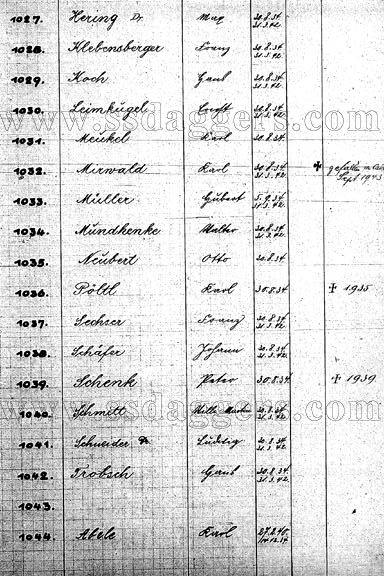 1027. Hering Dr. Max 30.8.34. 31.3.42.
1028. Klebensberger Franz 30.8.34 31.3.42.
1029. Koch 30.8.34 31.3.42.
1030. Leimkugel 30.8.34. 31.3.42.
www.ssdaggers.com
1031. Meickel Karl 30.8.34.
1032. Mirwald Karl 30.8.34 31.3.42. ✝ gefallen Sept 1943
1033. Müller Hubert 5.9.34 31.3.42.
1034. Mundhenke Walter 30.8.34 31.3.42.
1035. Neubert Otto 30.8.34
1036. Pöltl Karl 30.8.34 ✝ 1935
1037. Sechser Franz 30.8.34. 31.3.42.
1038. Schäfer Johann 30.8.34 31.3.42.
1039. Schenk Peter 30.8.34. ✝ 1939
www.ssdaggers.com
1040. Schmitt Martin 30.8.34 31.3.42.
1041. Schneider Ludwig 30.8.34 31.3.42.
1042. Trobsch 30.8.34. 31.3.42.
1043.
1044. Abele Karl 27.2.40.